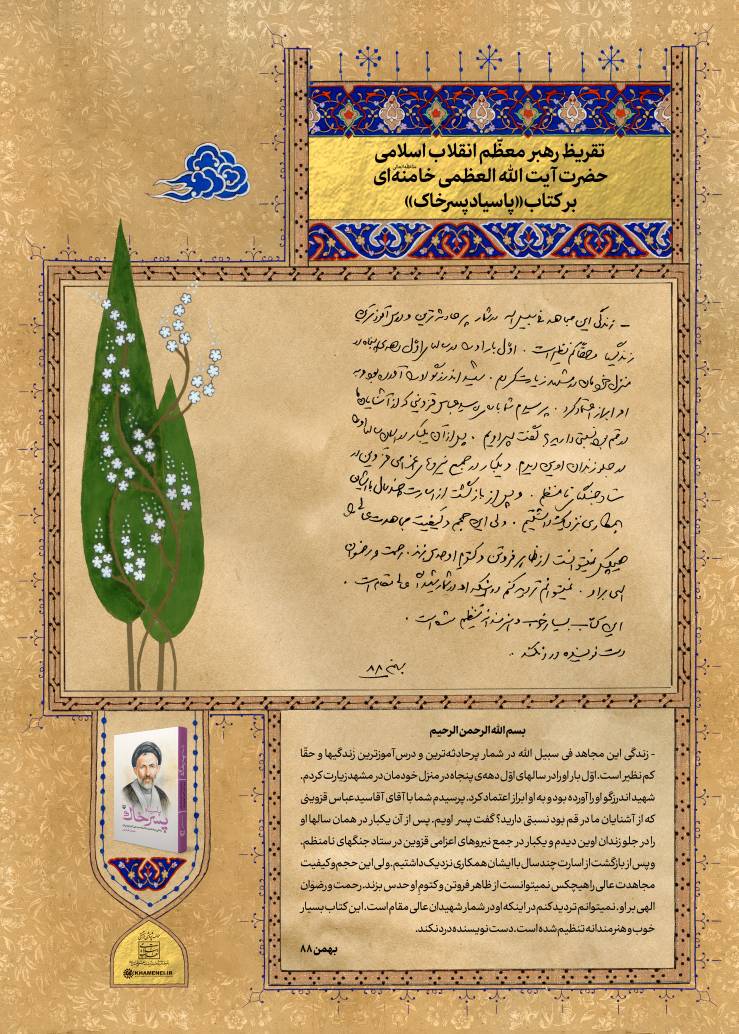 تقریظ رهبر معظّم انقلاب اسلامی
حضرت آیت الله العظمی خامنه‌ای
بر کتاب «پاسیاد پسر خاک»
- زندگی این مجاهد فی سبیل الله در شمار پرحادثه‌ترین و درس‌آموزترین
زندگیها و حقّا کم نظیر است. اوّل بار او را در سالهای اوّل دهه‌ی پنجاه در
منزل خودمان در مشهد زیارت کردم. شهید اندرزگو او را آورده بود و به
او ابراز اعتماد کرد. پرسیدم شما با آقای سیدعباس قزوینی که از آشنایان ما
در قم بود نسبتی دارید؟ گفت پسر اویم. پس از آن یکبار در همان سالها او را
در جلو زندان اوین دیدم و یکبار در جمع نیروهای اعزامی قزوین در
ستاد جنگهای نامنظم. و پس از بازگشت از اسارت چند سال با ایشان
همکاری نزدیک داشتیم. ولی این حجم و کیفیت مجاهدت عالی را
هیچکس نمیتوانست از ظاهر فروتن و کتوم او حدس بزند. رحمت و رضوان
الهی بر او. نمیتوانم تردید کنم در اینکه او در شمار شهیدان عالی مقام است.
این کتاب بسیار خوب و هنرمندانه تنظیم شده است.
دست نویسنده درد نکند.
بهمن ۸۸
بسم الله الرحمن الرحیم
- زندگی این مجاهد فی سبیل الله در شمار پرحادثه‌ترین و درس‌آموزترین زندگیها و حقّا
کم نظیر است. اوّل بار او را در سالهای اوّل دهه‌ی پنجاه در منزل خودمان در مشهد زیارت کردم.
شهید اندرزگو او را آورده بود و به او ابراز اعتماد کرد. پرسیدم شما با آقای آقاسیدعباس قزوینی
که از آشنایان ما در قم بود نسبتی دارید؟ گفت پسر اویم. پس از آن یکبار در همان سالها او
را در جلو زندان اوین دیدم و یکبار در جمع نیروهای اعزامی قزوین در ستاد جنگهای نامنظم.
و پس از بازگشت از اسارت چند سال با ایشان همکاری نزدیک داشتیم. ولی این حجم و کیفیت
مجاهدت عالی را هیچکس نمیتوانست از ظاهر فروتن و کتوم او حدس بزند. رحمت و رضوان
الهی بر او. نمیتوانم تردید کنم در اینکه او در شمار شهیدان عالی مقام است. این کتاب بسیار
خوب و هنرمندانه تنظیم شده است. دست نویسنده درد نکند.
بهمن ۸۸
پسر خاک
KHAMENEI.IR